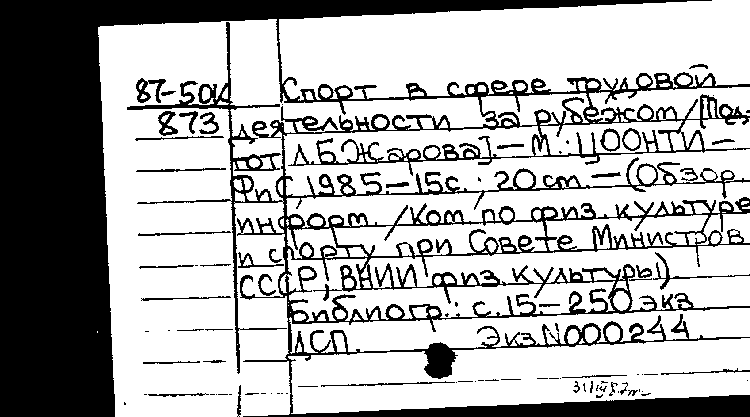 87-50К Спорт в сфере трудовой
873 деятельности за рубежом/[Под-
гот. Л.Б.Жарова].-М.:ЦООНТИ-
ФиС, 1985.-15с.; 20 ст.-(Обзор.
информ./Ком. по физ. культуре
и спорту при Совете Министров
СССР, ВНИИ физ. культуры).
Библиогр.: с.15.- 250 экз
ДСП. Экз.N000244.